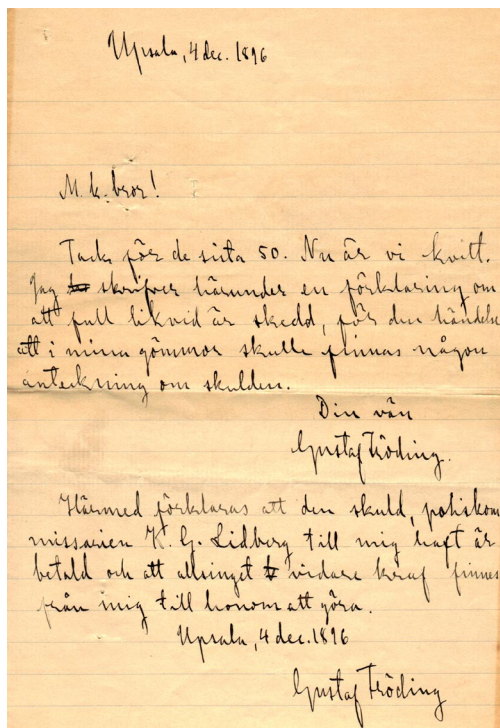 Upsala, 4 dec. 1896
M. k. bror!
Tack för de sista 50. Nu är vi kvitt.
Jag skrifver härunder en förklaring om
att full likvid är skedd, för den händelse
att i mina gömmor skulle finnas någon
anteckning om skulden.
Din vän
Gustaf Fröding.
Härmed förklaras att den skuld, poliskom
missarien K. G. Lidberg till mig haft är
betald och att allsinget vidare kraf finnes
från mig till honom att göra.
Upsala, 4 dec. 1896
Gustaf Fröding